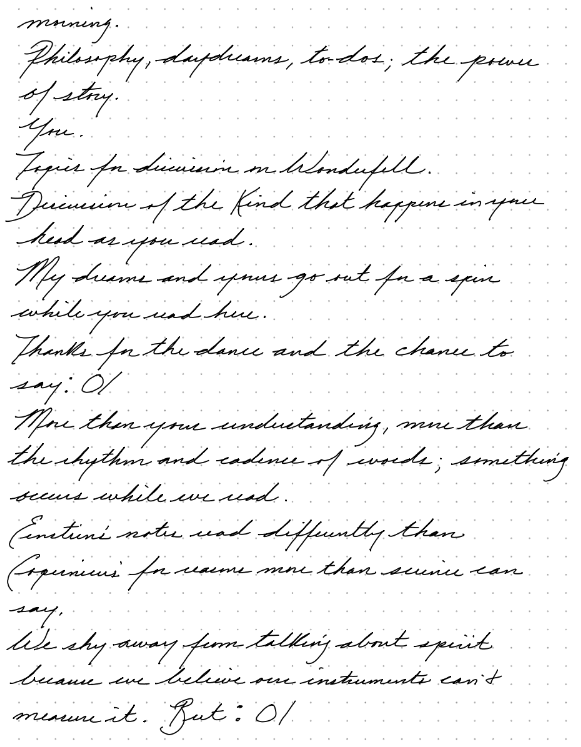 morning.
Philosophy, daydreams, to-dos; the power
of story.
You.
Topics for discussion on Wonderfell.
Discussion of the Kind that happens in your
head as you read.
My dreams and yours go out for a spin
while you read here.
Thanks for the dance and the chance to
say: O/
More than your understanding, more than
the rhythm and cadence of words; something
occurs while we read.
Einstein's notes read differently than
Copernicus' for reasons more than science can
say.
We shy away from talking about spirit
because we believe our instruments can't
measure it. But: O/